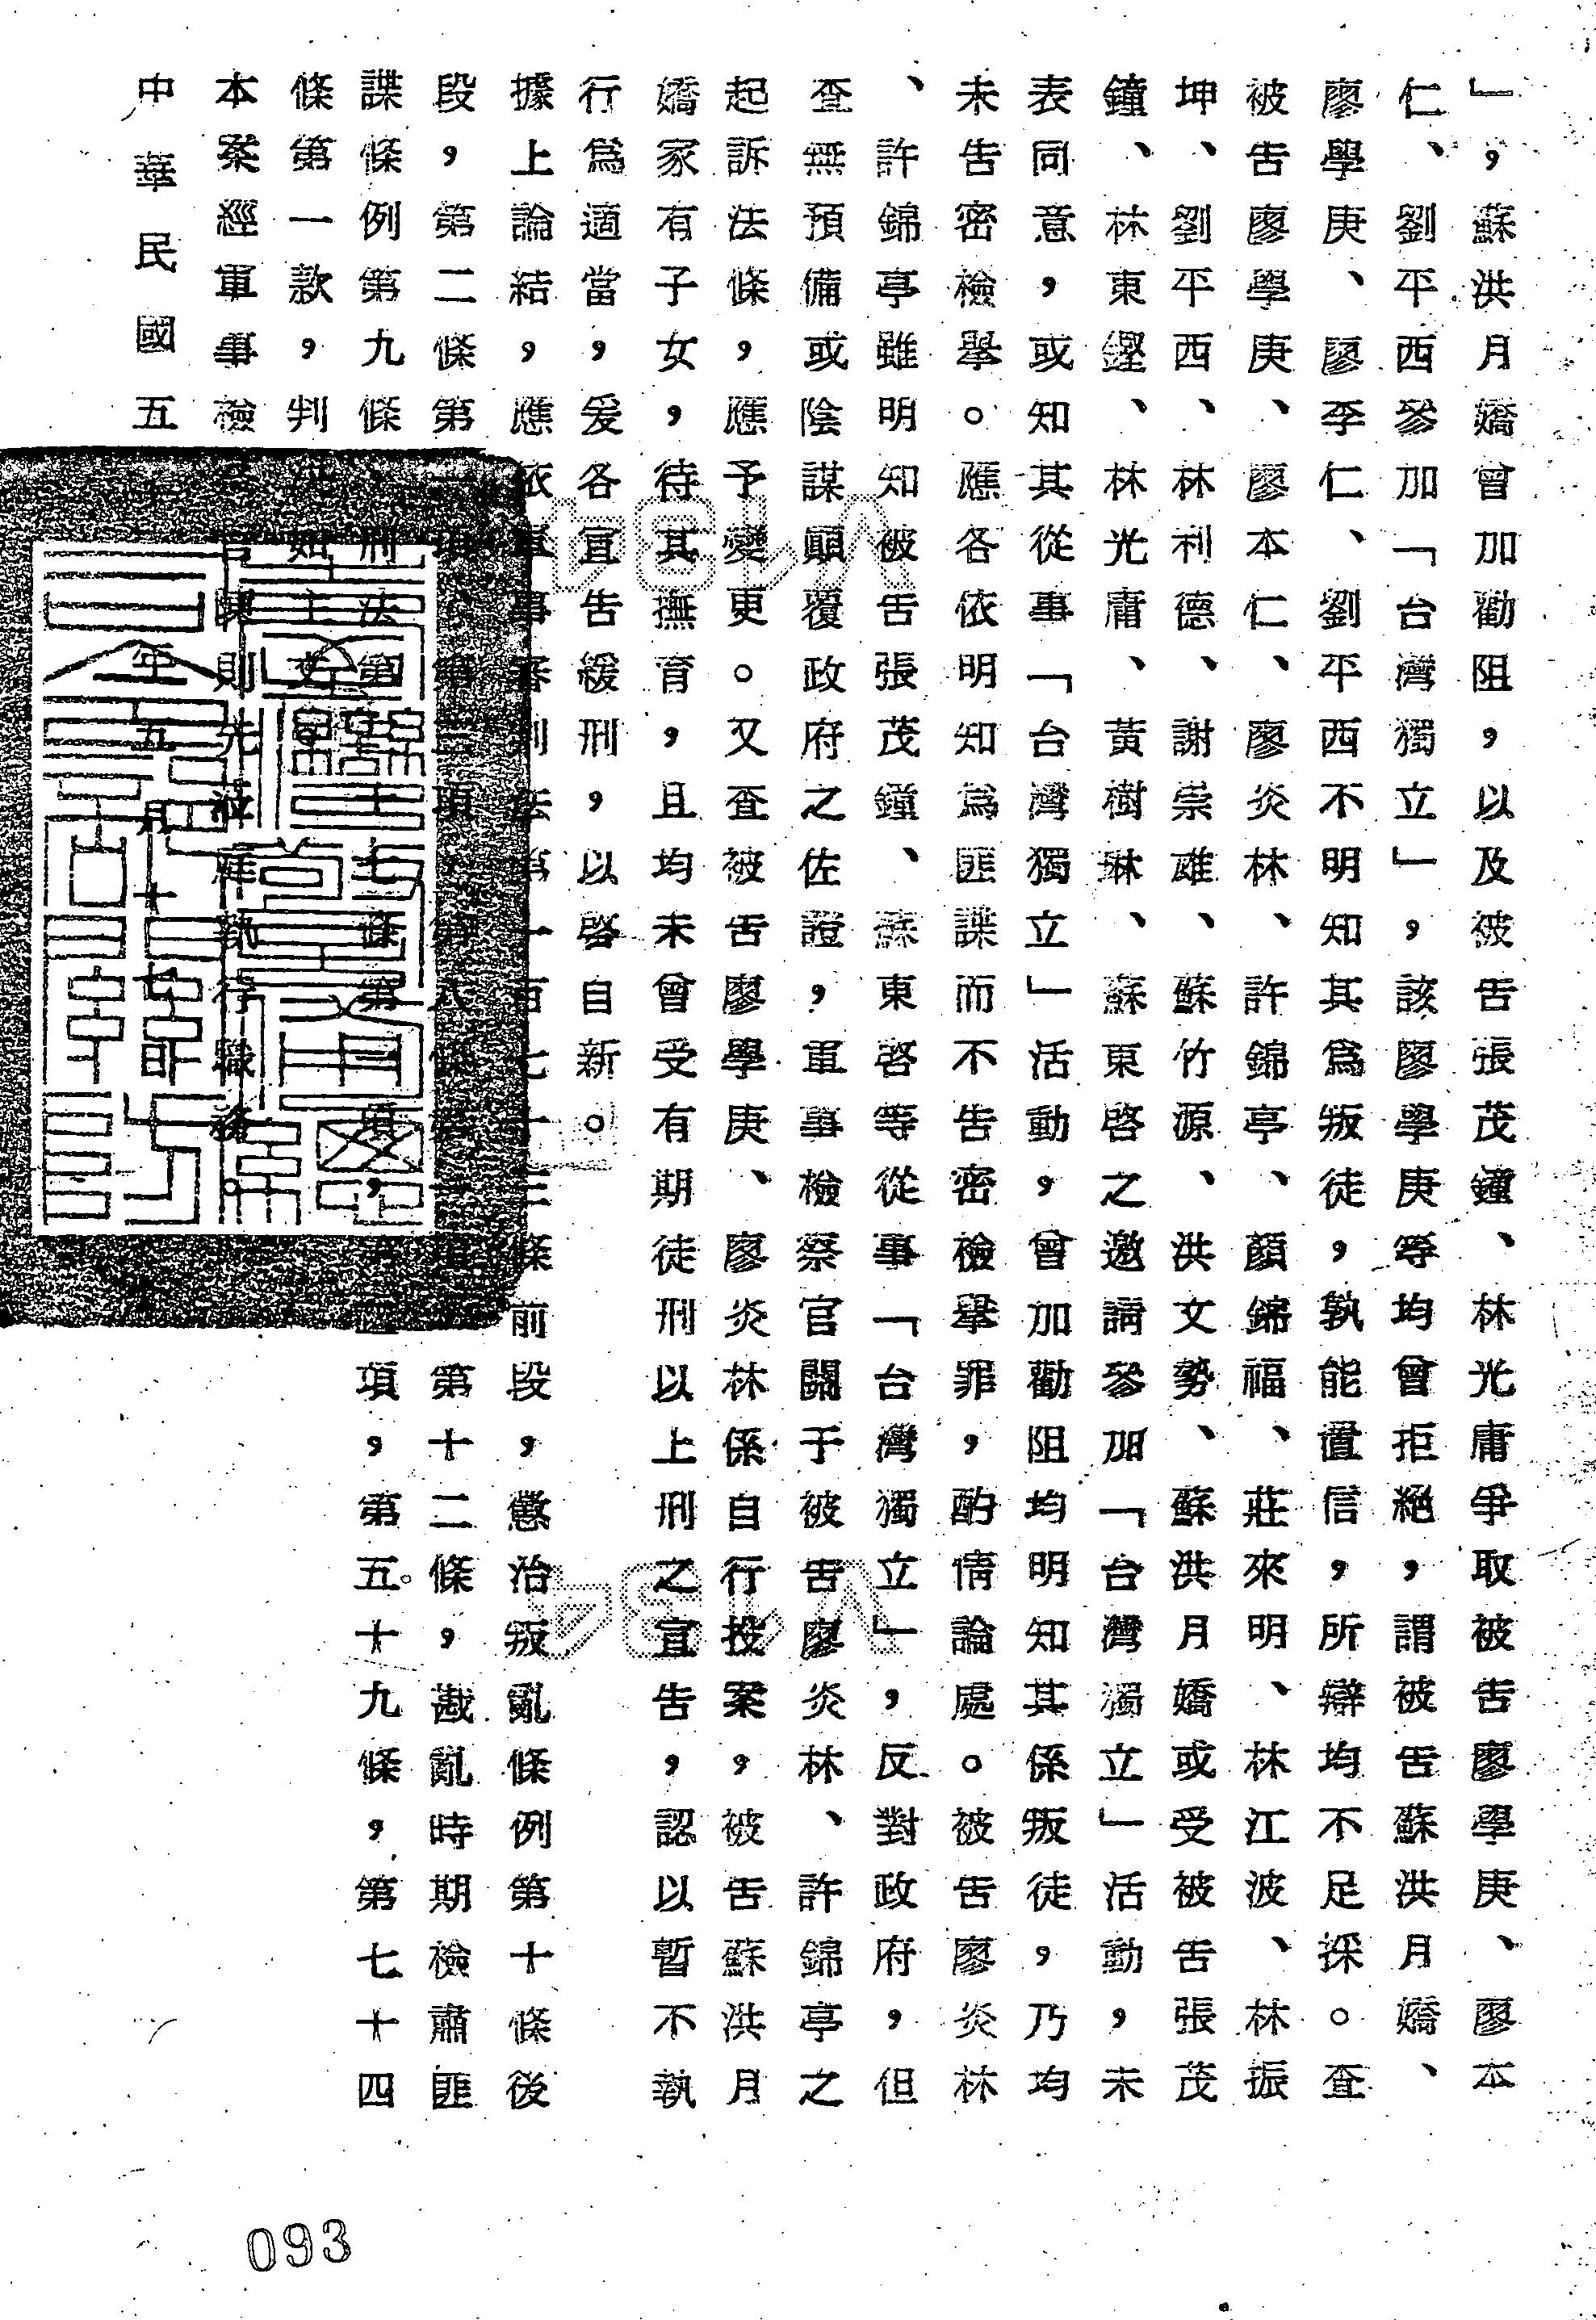 」，蘇洪月嬌曾加勸阻，以及被告張茂鐘、林光庸爭取被告廖學庚、廖本
仁、劉平西參加「台灣獨立」，該廖學庚等均曾拒絕，謂被告蘇洪月嬌、
廖學庚、廖李仁、劉平西不明知其為叛徒，孰能置信，所辯均不足採。查
被告廖學庚、廖本仁、廖炎林、許錦亭、顏錦福、莊來明、林江波、林振
坤、劉平西、林利德、謝崇雄、蘇竹源、洪文勢、蘇洪月嬌或受被告張茂
鐘、林東鏗、林光庸、黃樹琳、蘇東啓之邀請參加「台灣獨立」活動，未
表同意，或知其從事「台灣獨立」活動，曾加勸阻均明知其係叛徒，乃均
未告密檢舉。應各依明知為匪諜而不告密檢舉罪，酌情論處。被告廖炎林
、許錦亭雖明知被告張茂鐘、蘇東啓等從事「台灣獨立」，反對政府，但
查無預備或陰謀顛覆政府之佐證，軍事檢察官關于被告廖炎林、許錦亭之
起訴法條，應予變更。又查被告廖學庚、廖炎林係自行投案，被告蘇洪月
嬌家有子女，待其撫育，且均未曾受有期徒刑以上刑之宣告，認以暫不執
行為適當，爰各宣告緩刑，以啓自新。
據上論結，應依軍事審判法第一百七十三條前段，懲治叛亂條例第十條後
段，第二條第一項、第三項、第八條第一項第十二條，戡亂時期檢肅匪
諜條例第九條，刑法第三十七條第二項，第項，第五十九條，第七十四
條第一款，判決如主文。
本案經軍事檢官陳則先蒞庭執行職務。
中華民國五十年五月十七日
V134
V134
093